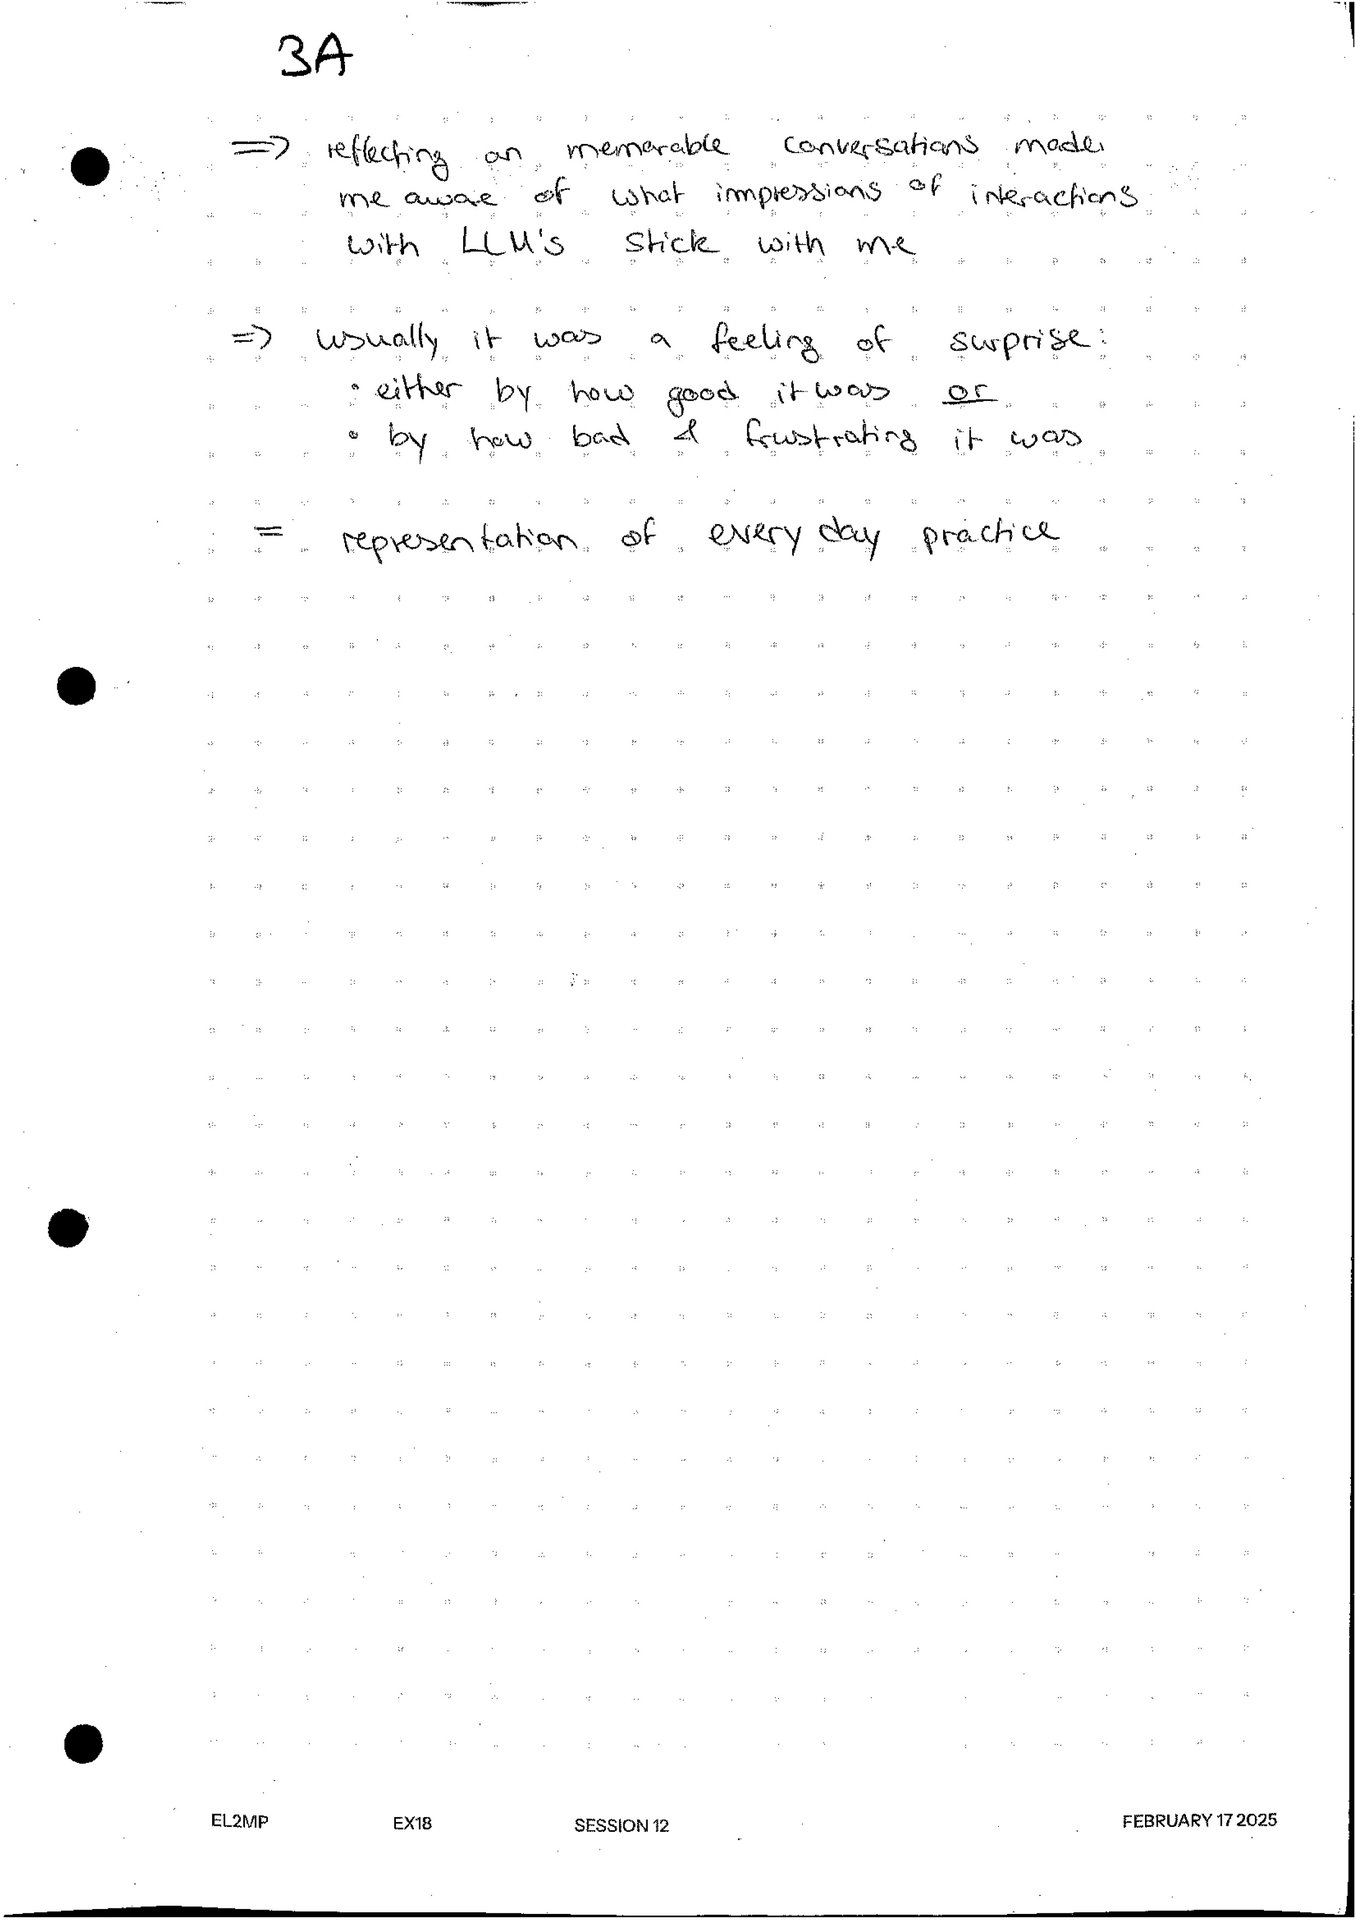 3A
=> reflecting on memorable conversations made
me aware of what impressions of interactions
with LLM's stick with me
=> usually it was a feeling of surprise:
• either by how good it was or
• by how bad & frustrating it was
= representation of every day practice
EL2MP EX18 SESSION 12 FEBRUARY 17 2025